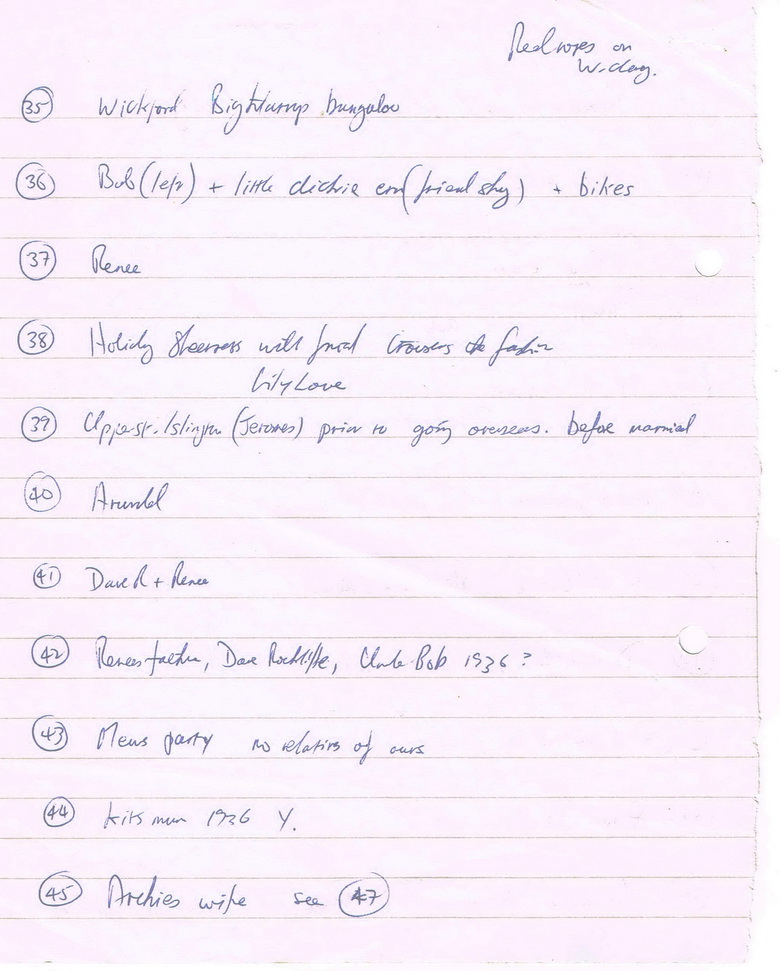 Red roses on
W-day.
35 Wickford bungalow
36 Bob (left) + little dickie (friend shy) + bikes
37 Renee
38 Holidy Sheerness with friend trousers the fashion
Lily Love
39 Upper st. Islington (Jeromes) prior to going overseas. before married
40 Arundel
41 Dave R + Renee
42 Renees father, Dave Rockliffe, Uncle Bob 1936 ?
43 Mens party no relatives of ours
44 kits mum 1936 Y.
45 Archies wife see 47